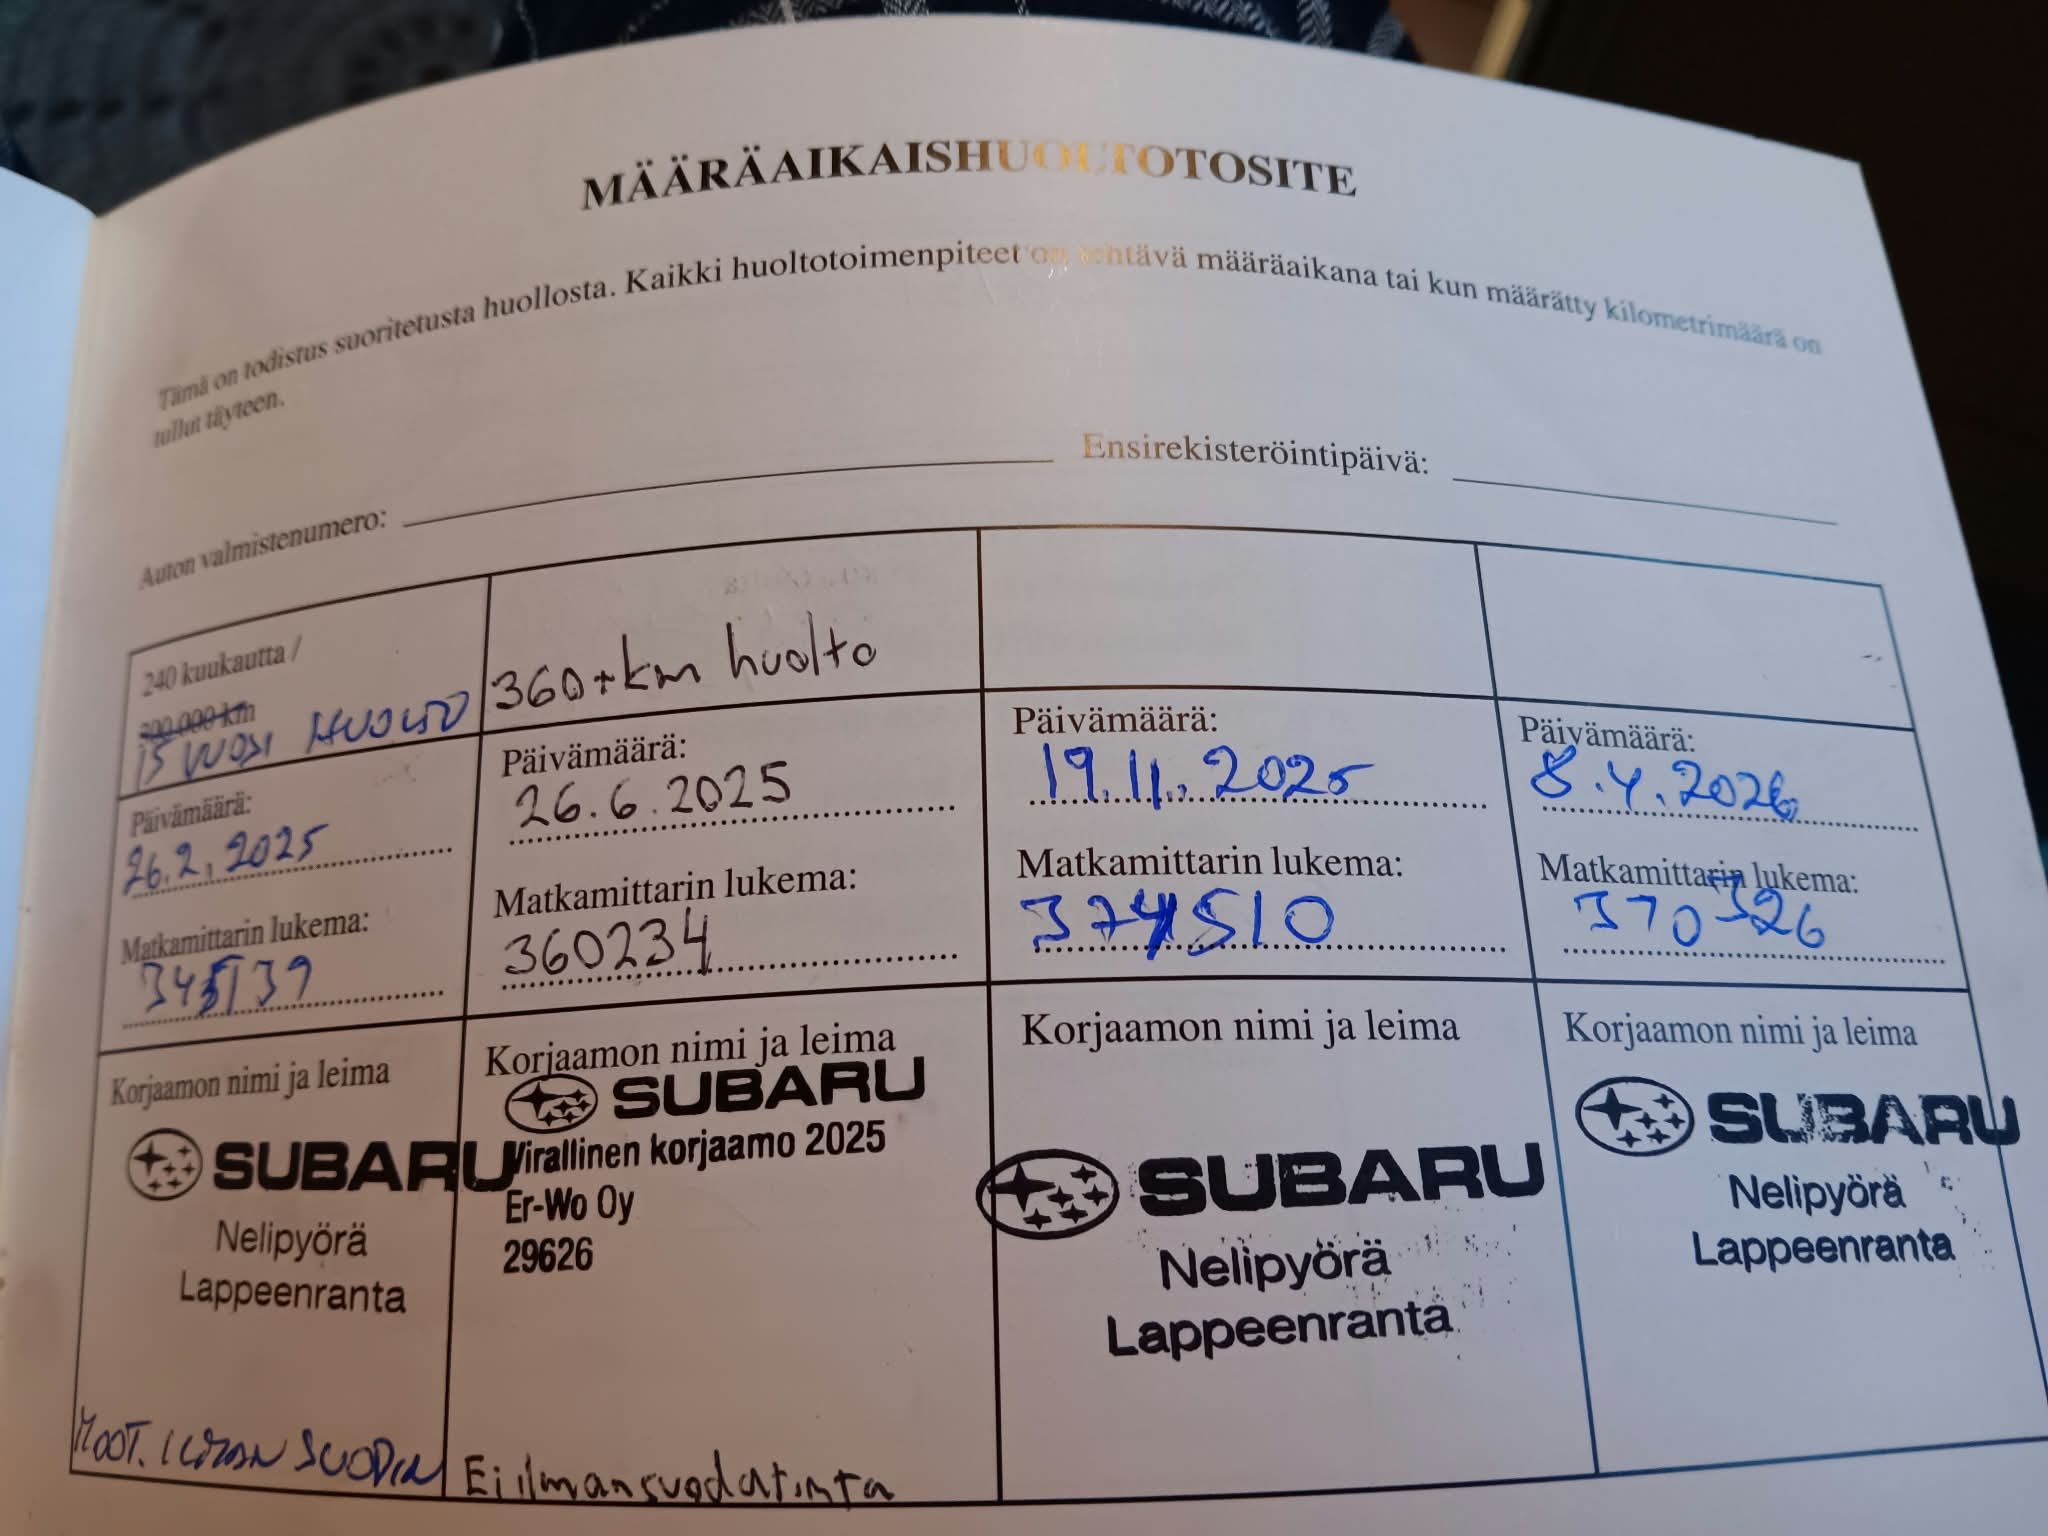 MÄÄRÄAIKAISHUOLTOTOSITE
Tämä on todistus suoritetusta huollosta. Kaikki huoltotoimenpiteet on tehtävä määräaikana tai kun määrätty kilometrimäärä on
tullut täyteen.
Auton valmistenumero:
Ensirekisteröintipäivä:
240 kuukautta /
300.000 km
15 VUOSI HUOLTO
Päivämäärä:
26.2.2025
Matkamittarin lukema:
345139
Korjaamon nimi ja leima
SUBARU
Nelipyörä
Lappeenranta
MOOT. ILMAN SUODIN
360+km huolto
Päivämäärä:
26.6.2025
Matkamittarin lukema:
360234
Korjaamon nimi ja leima
SUBARU
Virallinen korjaamo 2025
Er-Wo Oy
29626
Ei ilmansuodatinta
Päivämäärä:
19.11.2025
Matkamittarin lukema:
374510
Korjaamon nimi ja leima
SUBARU
Nelipyörä
Lappeenranta
Päivämäärä:
8.4.2026
Matkamittarin lukema:
370326
Korjaamon nimi ja leima
SUBARU
Nelipyörä
Lappeenranta